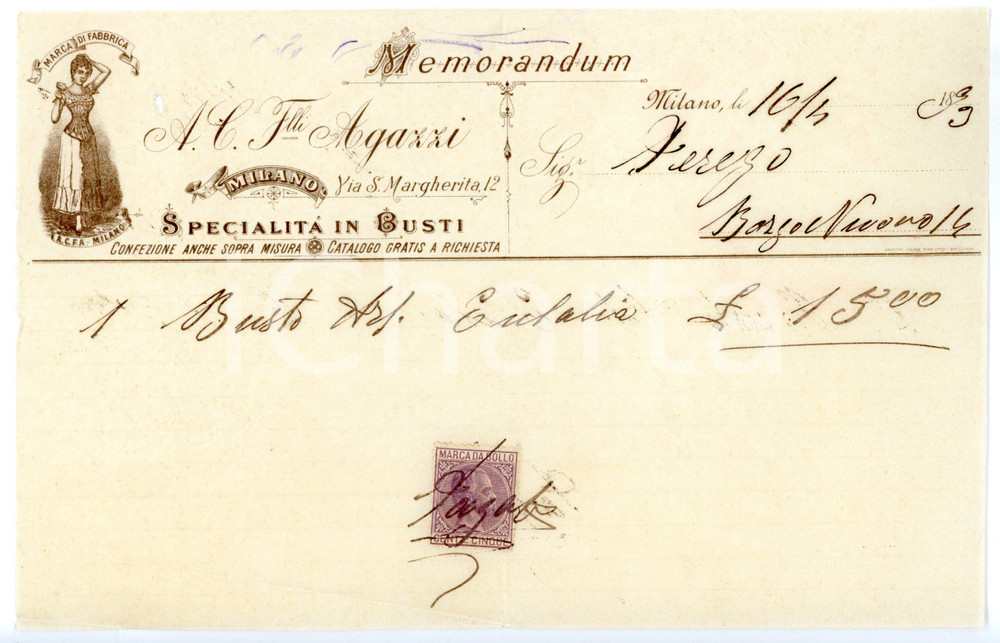 MARCA DI FABBRICA
Memorandum
A. C. F.lli Agazzi
MILANO
Via S. Margherita, 12
SPECIALITÁ IN BUSTI
CONFEZIONE ANCHE SOPRA MISURA CATALOGO GRATIS A RICHIESTA
A.C.F.A. MILANO
Milano, li 16/4 1893
Sig.r
Borgo Nuovo 14
1 Busto Eulalia £ 15 00
iCharta
MARCA DA BOLLO
Pagato
CENT. CINQUE